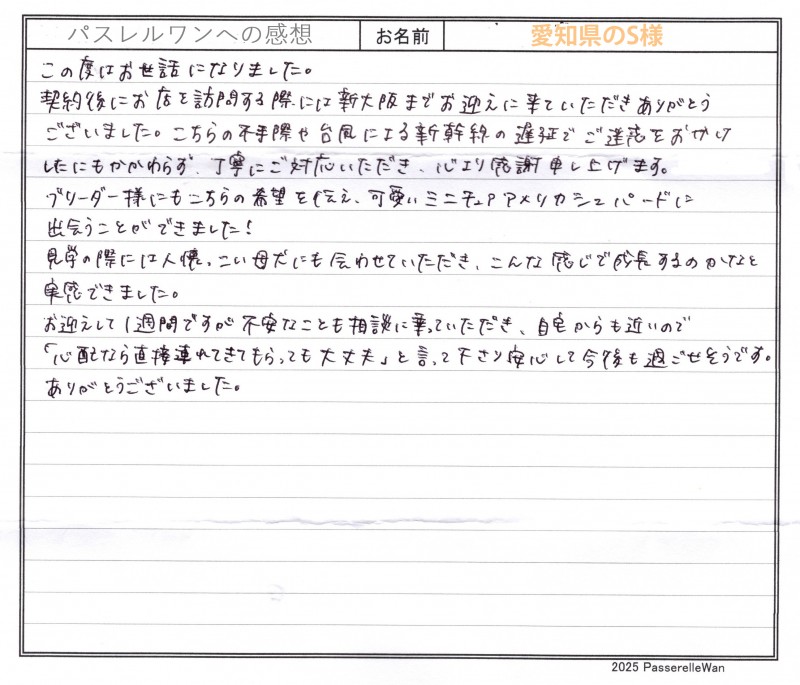 パスレルワンへの感想 お名前 愛知県のS様
この度はお世話になりました。
契約後にお店を訪問する際には新大阪までお迎えに来ていただきありがとう
ございました。こちらの不手際や台風による新幹線の遅延でご迷惑をおかけ
したにもかかわらず、丁寧にご対応いただき、心より感謝申し上げます。
ブリーダー様にもこちらの希望を伝え、可愛いミニチュアアメリカンシェパードに
出会うことができました!
見学の際には人懐っこい母犬にも会わせていただき、こんな感じで成長するのかなと
実感できました。
お迎えして1週間ですが不安なことも相談に乗っていただき、自宅からも近いので
「心配なら直接連れてきてもらっても大丈夫」と言って下さり安心して今後も過ごせそうです。
ありがとうございました。
2025 PasserelleWan